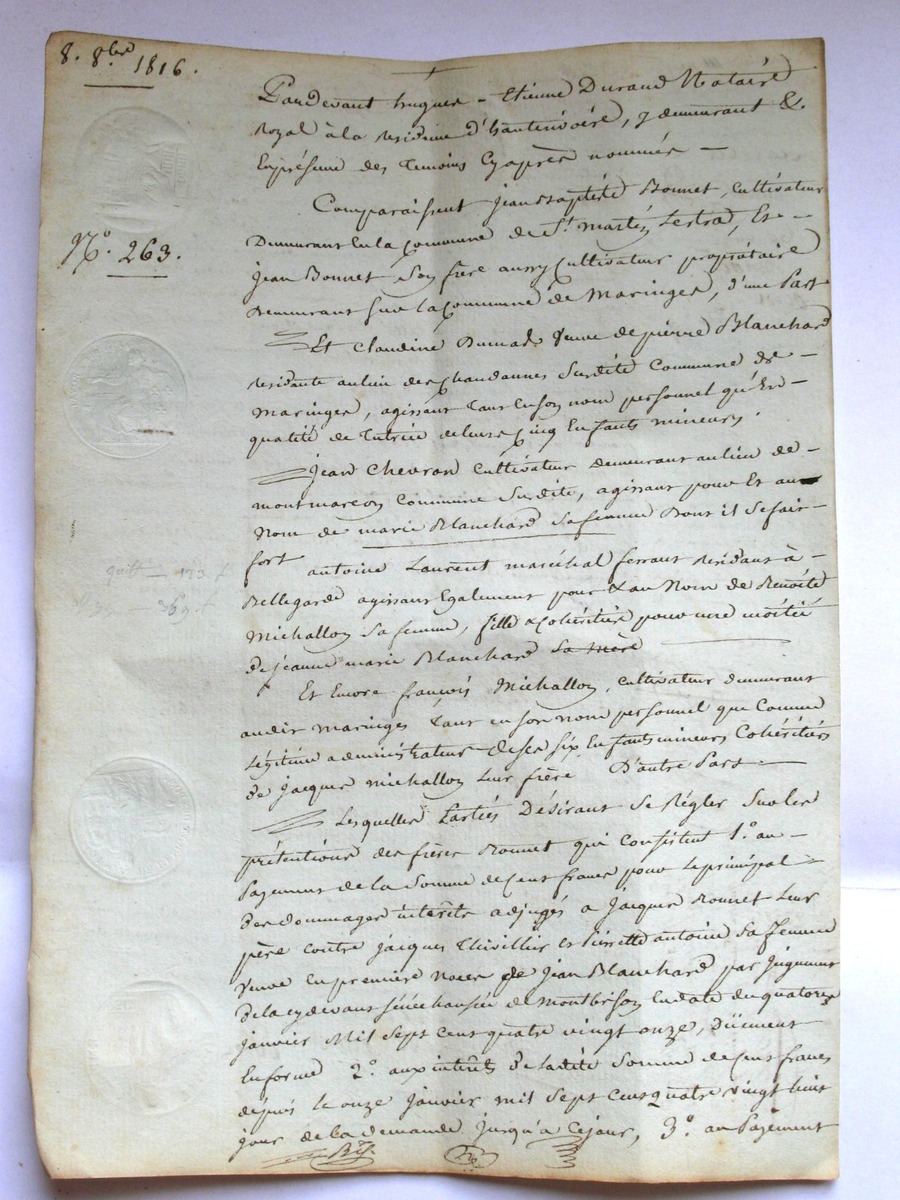 8. 8.bre 1816.
N.° 263.
Pardevant hugues - Etienne Durand Notaire
Royal à la residence d'hauterivoire, y demeurant &.
En présence des temoins Cy après nommés —
Comparaissent jean Baptiste Bonnet, cultivateur
Demeurant En la Commune de St. martin Lestra, Et -
jean Bonnet son frère aussy Cultivateur propriétaire
demeurant sur la Commune de Maringes, d'une Part
Et Claudine Dumas Veuve de pierre Blanchard
residante au lieu des Chandannes Susdite Commune de -
Maringes, agissant tant En son nom personnel qu'En -
qualité de tutrice de leurs Cinq Enfants mineurs.
Jean Chevron Cultivateur demeurant au lieu de -
montmarcon Commune Susdite, agissant pour Et au
Nom de marie Blanchard sa femme Dont il se fait -
fort
antoine Laurent maréchal ferrant Residant à -
Bellegarde agissant Egalement pour & au Nom de Benoite
Michallon Sa femme, fille & Cohéritière pour une moitié
de jeanne marie Blanchard sa mère
Et Encore françois Michallon, cultivateur demeurant
audit maringes tant en son nom personnel que Comme
Légitime administrateur de ses six Enfants mineurs Cohéritiers
de jacques michallon leur frère D'autre Part —
Lesquelles Parties Désirant se Régler sur les
prétentions des frères Bonnet qui Consistent 1.° au -
Payement de la Somme de Cent francs pour le principal
des dommages intérêts adjugés a jacques Bonnet leur
père contre jacques Thivillier et pierrette antoine sa femme
Veuve En première noces de jean Blanchard par jugement
de la cy devant sénéchaussée de Montbrison En date du quatorze
janvier Mil Sept Cent quatre vingt onze, Dûement
En forme 2.° aux intérêts de ladite Somme de Cent francs
depuis le onze janvier mil Sept Cent quatre vingt huit
jour de la demande jusqu'a Ce jour, 3.° au Payement